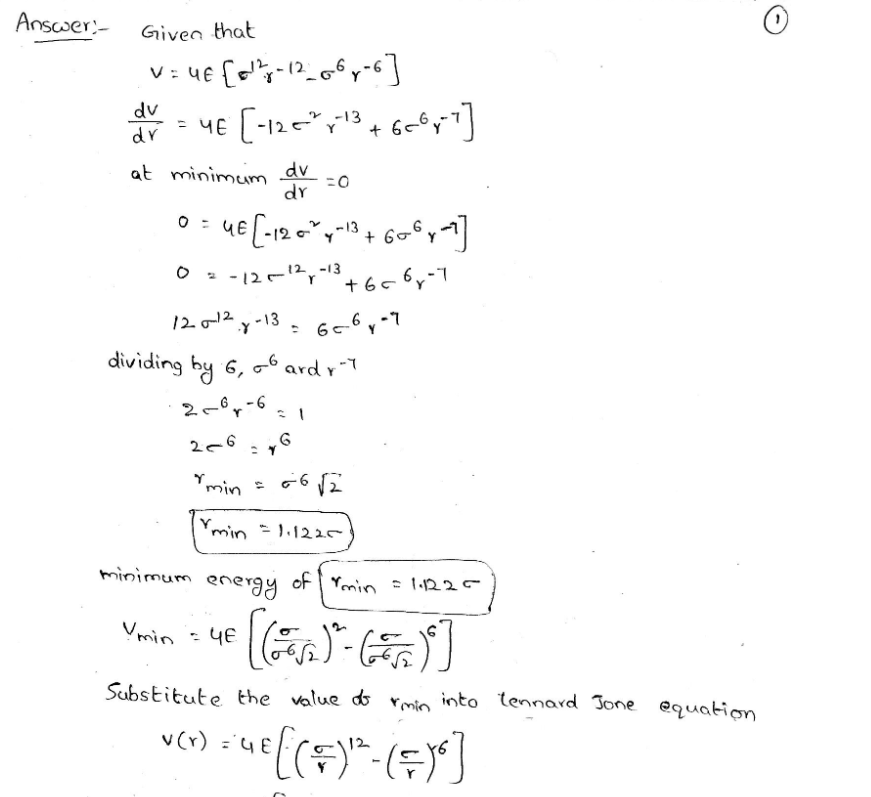 Answer:- Given that ①
V = 4ϵ [σ¹²r⁻¹² - σ⁶r⁻⁶]
dv/dr = 4ϵ [-12σ²r⁻¹³ + 6σ⁶r⁻⁷]
at minimum dv/dr = 0
0 = 4ϵ [-12σ²r⁻¹³ + 6σ⁶r⁻⁷]
0 = -12σ¹²r⁻¹³ + 6σ⁶r⁻⁷
12σ¹²r⁻¹³ = 6σ⁶r⁻⁷
dividing by 6, σ⁶ and r⁻⁷
2σ⁶r⁻⁶ = 1
2σ⁶ = r⁶
rmin = σ ⁶√2
rmin = 1.122σ
minimum energy of rmin = 1.122σ
Vmin = 4ϵ [(σ/σ⁶√2)¹² - (σ/σ⁶√2)⁶]
Substitute the value do rmin into lennard Jone equation
v(r) = 4ϵ [(σ/r)¹² - (σ/r)⁶]